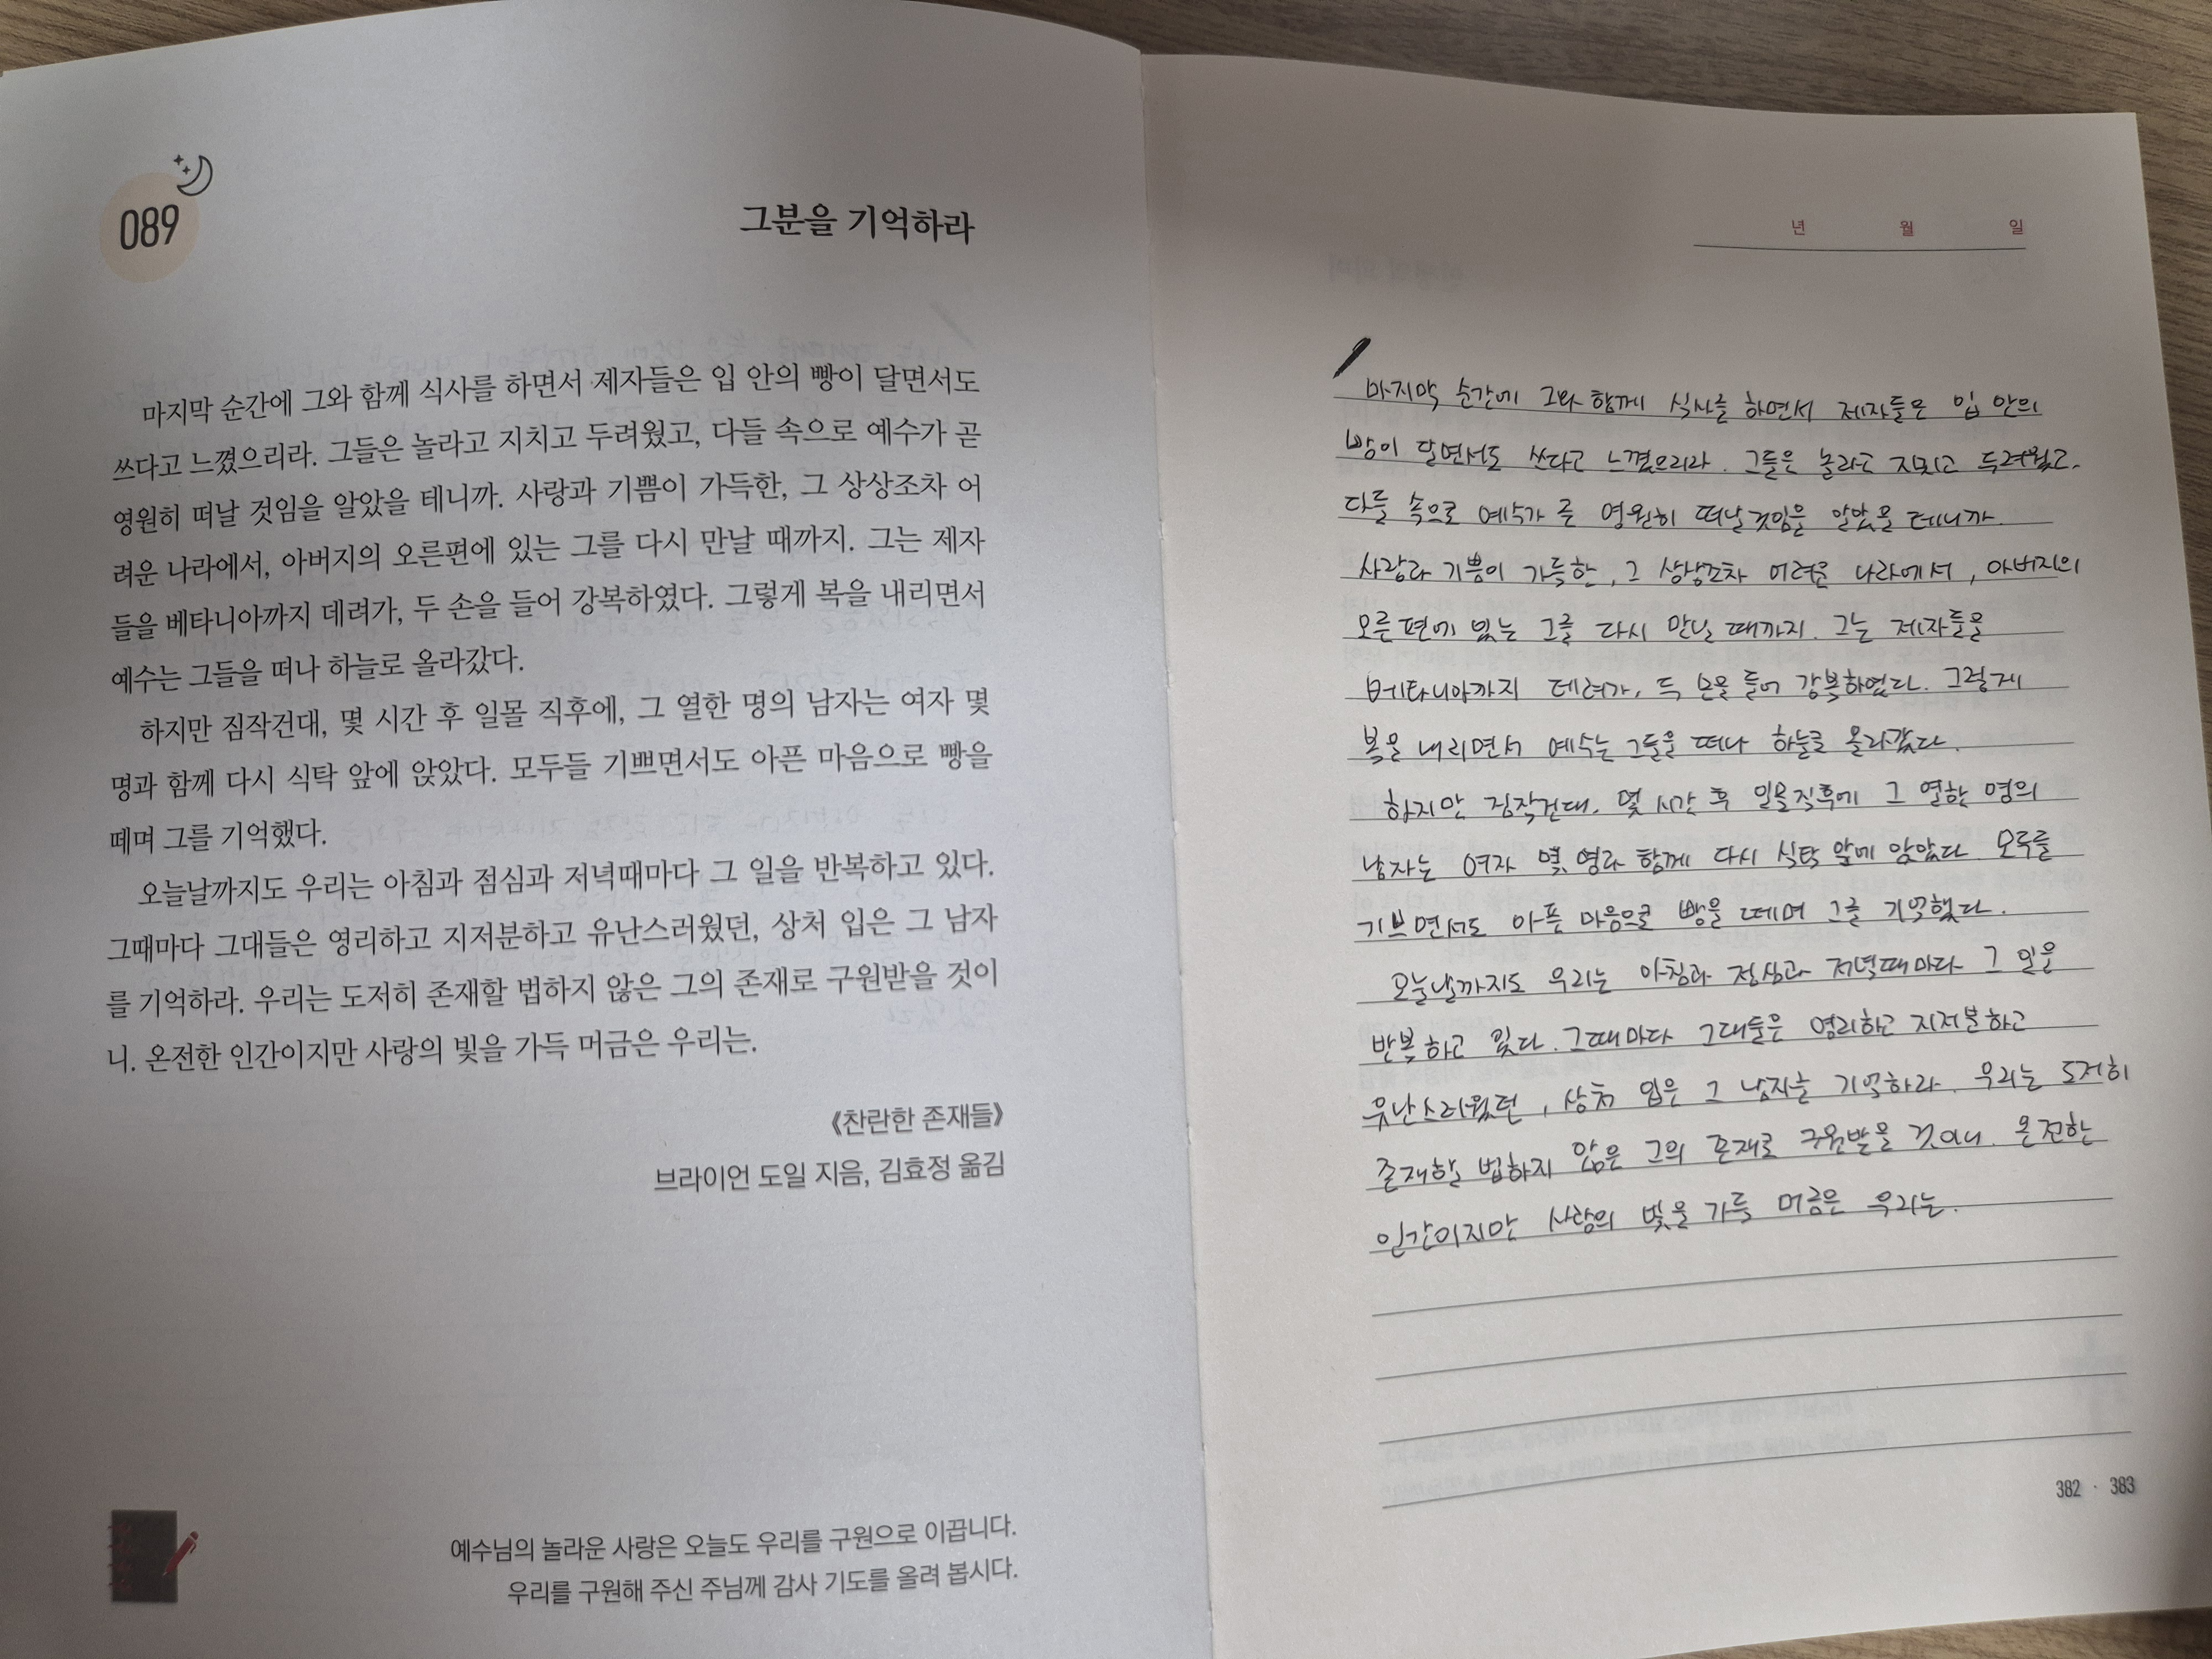 089
그분을 기억하라
마지막 순간에 그와 함께 식사를 하면서 제자들은 입 안의 빵이 달면서도
쓰다고 느꼈으리라. 그들은 놀라고 지치고 두려웠고, 다들 속으로 예수가 곧
영원히 떠날 것임을 알았을 테니까. 사랑과 기쁨이 가득한, 그 상상조차 어
려운 나라에서, 아버지의 오른편에 있는 그를 다시 만날 때까지. 그는 제자
들을 베타니아까지 데려가, 두 손을 들어 강복하였다. 그렇게 복을 내리면서
예수는 그들을 떠나 하늘로 올라갔다.
하지만 짐작건대, 몇 시간 후 일몰 직후에, 그 열한 명의 남자는 여자 몇
명과 함께 다시 식탁 앞에 앉았다. 모두들 기쁘면서도 아픈 마음으로 빵을
떼며 그를 기억했다.
오늘날까지도 우리는 아침과 점심과 저녁때마다 그 일을 반복하고 있다.
그때마다 그대들은 영리하고 지저분하고 유난스러웠던, 상처 입은 그 남자
를 기억하라. 우리는 도저히 존재할 법하지 않은 그의 존재로 구원받을 것이
니. 온전한 인간이지만 사랑의 빛을 가득 머금은 우리는.
《찬란한 존재들》
브라이언 도일 지음, 김효정 옮김
예수님의 놀라운 사랑은 오늘도 우리를 구원으로 이끕니다.
우리를 구원해 주신 주님께 감사 기도를 올려 봅시다.
년 월 일
마지막 순간에 그와 함께 식사를 하면서 제자들은 입 안의
빵이 달면서도 쓰다고 느꼈으리라. 그들은 놀라고 지치고 두려웠고,
다들 속으로 예수가 곧 영원히 떠날 것임을 알았을 테니까.
사랑과 기쁨이 가득한, 그 상상조차 어려운 나라에서, 아버지의
오른편에 있는 그를 다시 만날 때까지. 그는 제자들을
베타니아까지 데려가, 두 손을 들어 강복하였다. 그렇게
복을 내리면서 예수는 그들을 떠나 하늘로 올라갔다.
하지만 짐작건대, 몇 시간 후 일몰직후에 그 열한 명의
남자는 여자 몇 명과 함께 다시 식탁 앞에 앉았다. 모두들
기쁘면서도 아픈 마음으로 빵을 떼며 그를 기억했다.
오늘날까지도 우리는 아침과 점심과 저녁때마다 그 일을
반복하고 있다. 그때마다 그대들은 영리하고 지저분하고
유난스러웠던, 상처 입은 그 남자를 기억하라. 우리는 도저히
존재할 법하지 않은 그의 존재로 구원받을 것이니. 온전한
인간이지만 사랑의 빛을 가득 머금은 우리는.
382 · 383